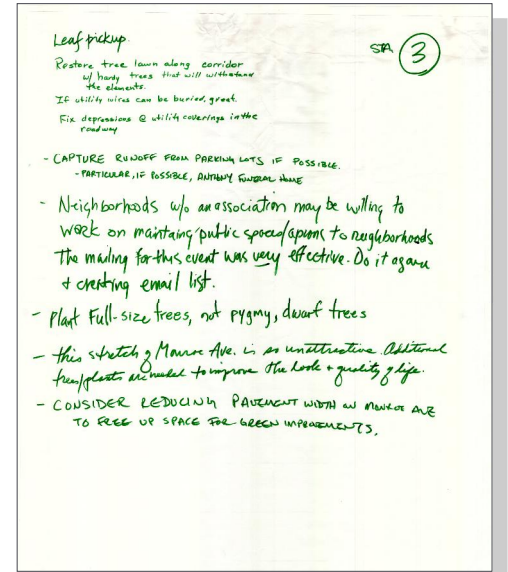 Leaf pickup.
STA 3
Restore tree lawn along corridor
w/ hardy trees that will withstand
the elements.
If utility wires can be buried, great.
Fix depressions @ utility coverings in the
roadway
- CAPTURE RUNOFF FROM PARKING LOTS IF POSSIBLE.
- PARTICULAR, IF POSSIBLE, ANTHONY FUNERAL HOME
- Neighborhoods w/o an association may be willing to
work on maintaing public spaces/aprons to neighborhoods
The mailing for this event was very effective. Do it again
+ creating email list.
- Plant Full-size trees, not pygmy, dwarf trees
- this stretch of Monroe Ave. is so unattractive. Additional
trees/plants are needed to improve the look + quality of life.
- CONSIDER REDUCING PAVEMENT WIDTH ON MONROE AVE
TO FREE UP SPACE FOR GREEN IMPROVEMENTS.